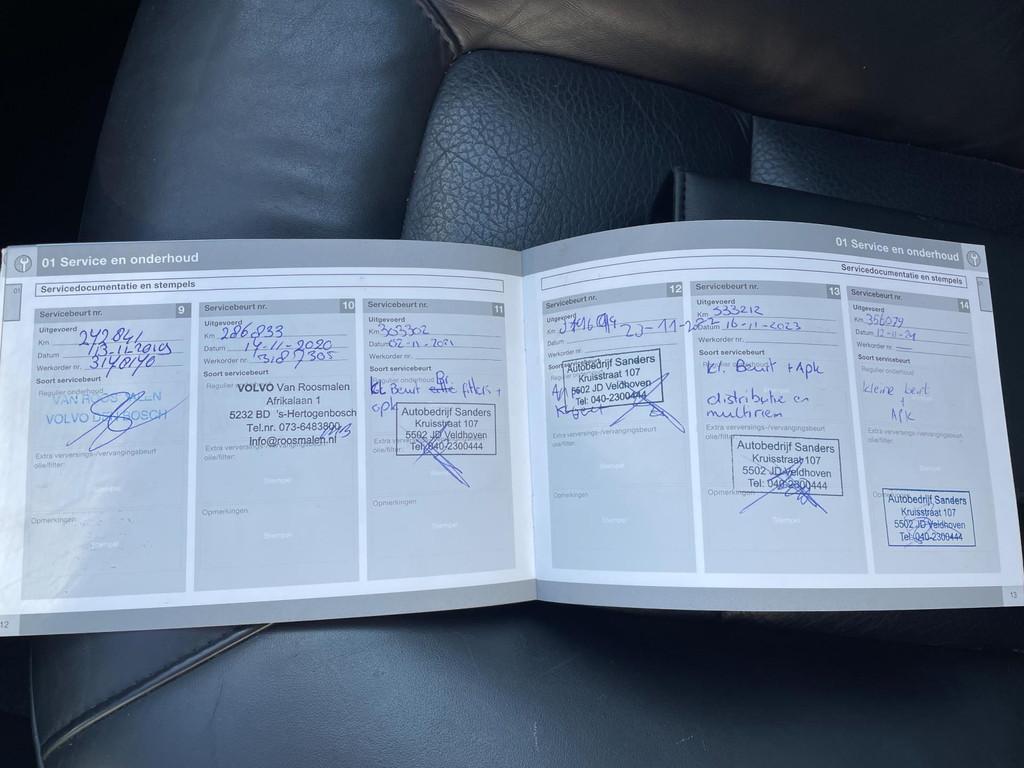 01 Service en onderhoud
01
Servicedocumentatie en stempels
Servicebeurt nr. 9
Uitgevoerd
Km 242841
Datum 13-11-2019
Werkorder nr.
Soort servicebeurt
Regulier onderhoud
VOLVO DEN BOSCH
Extra verversings-/vervangingsbeurt
olie/filter:
Stempel
Opmerkingen
Stempel
Servicebeurt nr. 10
Uitgevoerd
Km 286833
Datum 14-11-2020
Werkorder nr. 31877305
Soort servicebeurt
Regulier
VOLVO Van Roosmalen
Afrikalaan 1
5232 BD 's-Hertogenbosch
Tel.nr. 073-6483900
Info@roosmalen.nl
Extra
olie/filter:
Stempel
Opmerkingen
Stempel
Servicebeurt nr. 11
Uitgevoerd
Km 303302
Datum 02-11-2021
Werkorder nr.
Soort servicebeurt
Regulier onderhoud
kl. Beurt filters +
apk
Autobedrijf Sanders
Kruisstraat 107
5502 JD Veldhoven
Tel: 040-2300444
Extra
olie/filter:
Opmerkingen
Stempel
12
01 Service en onderhoud
Servicedocumentatie en stempels
Servicebeurt nr. 12
Uitgevoerd
Km
Datum
Werkorder nr.
Soort
Autobedrijf Sanders
Kruisstraat 107
5502 JD Veldhoven
Tel: 040-2300444
Extra verversings-/vervangingsbeurt
olie/filter:
Stempel
Opmerkingen
Servicebeurt nr. 13
Uitgevoerd
Km 333212
Datum 16-11-2023
Werkorder nr.
Soort servicebeurt
kl. Beurt + Apk
distributie en
multirien
Extra verversings-/vervangingsbeurt
olie/filter:
Autobedrijf Sanders
Kruisstraat 107
5502 JD Veldhoven
Tel: 040-2300444
Opmerkingen
Servicebeurt nr. 14
Uitgevoerd
Km 356079
Datum 12-11-24
Werkorder nr. —
Soort servicebeurt
Regulier onderhoud
kleine beurt
+
APK
Extra verversings-/vervangingsbeurt
olie/filter:
Stempel
Autobedrijf Sanders
Kruisstraat 107
5502 JD Veldhoven
Tel: 040-2300444
13